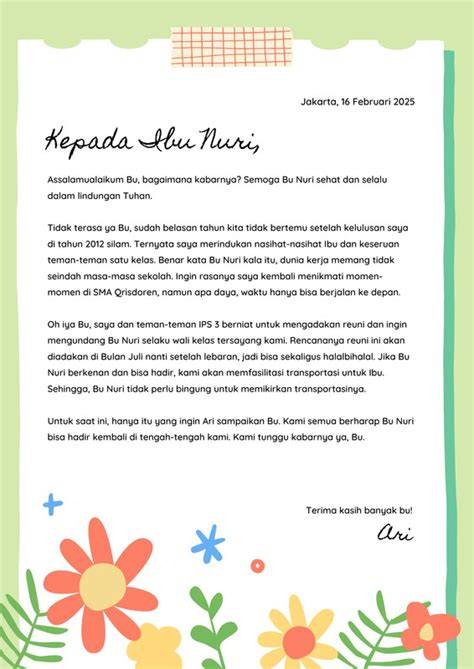 Jakarta, 16 Februari 2025
Kepada Ibu Nuri,
Assalamualaikum Bu, bagaimana kabarnya? Semoga Bu Nuri sehat dan selalu
dalam lindungan Tuhan.
Tidak terasa ya Bu, sudah belasan tahun kita tidak bertemu setelah kelulusan saya
di tahun 2012 silam. Ternyata saya merindukan nasihat-nasihat Ibu dan keseruan
teman-teman satu kelas. Benar kata Bu Nuri kala itu, dunia kerja memang tidak
seindah masa-masa sekolah. Ingin rasanya saya kembali menikmati momen-
momen di SMA Qrisdoren, namun apa daya, waktu hanya bisa berjalan ke depan.
Oh iya Bu, saya dan teman-teman IPS 3 berniat untuk mengadakan reuni dan ingin
mengundang Bu Nuri selaku wali kelas tersayang kami. Rencananya reuni ini akan
diadakan di Bulan Juli nanti setelah lebaran, jadi bisa sekaligus halalbihalal. Jika Bu
Nuri berkenan dan bisa hadir, kami akan memfasilitasi transportasi untuk Ibu.
Sehingga, Bu Nuri tidak perlu bingung untuk memikirkan transportasinya.
Untuk saat ini, hanya itu yang ingin Ari sampaikan Bu. Kami semua berharap Bu Nuri
bisa hadir kembali di tengah-tengah kami. Kami tunggu kabarnya ya, Bu.
Terima kasih banyak bu!
Ari